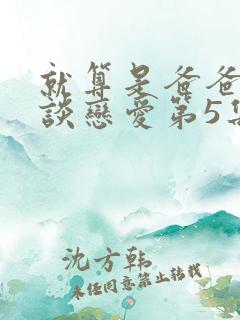 就算是爸爸
談戀愛第5集
沈方韩
未经同意禁止转载